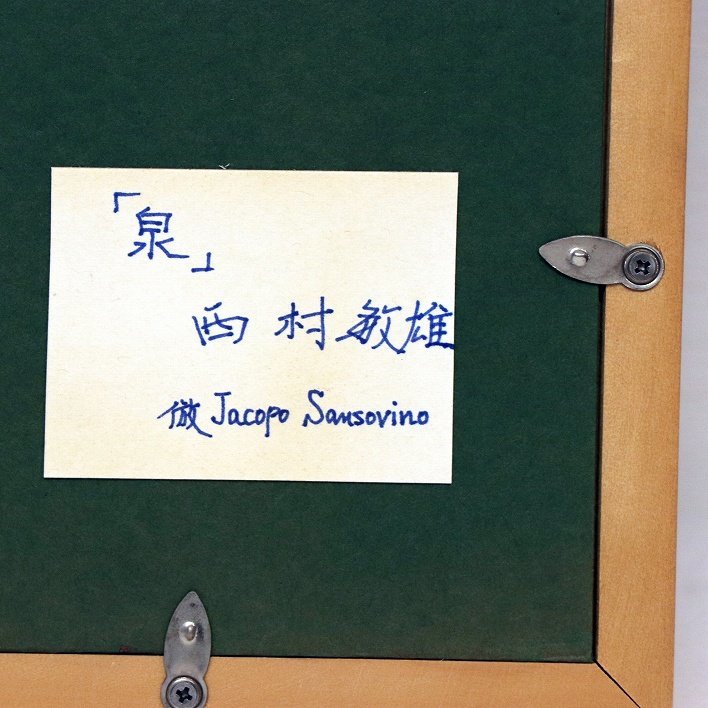 「泉」
西村敏雄
倣 Jacopo Sansovino